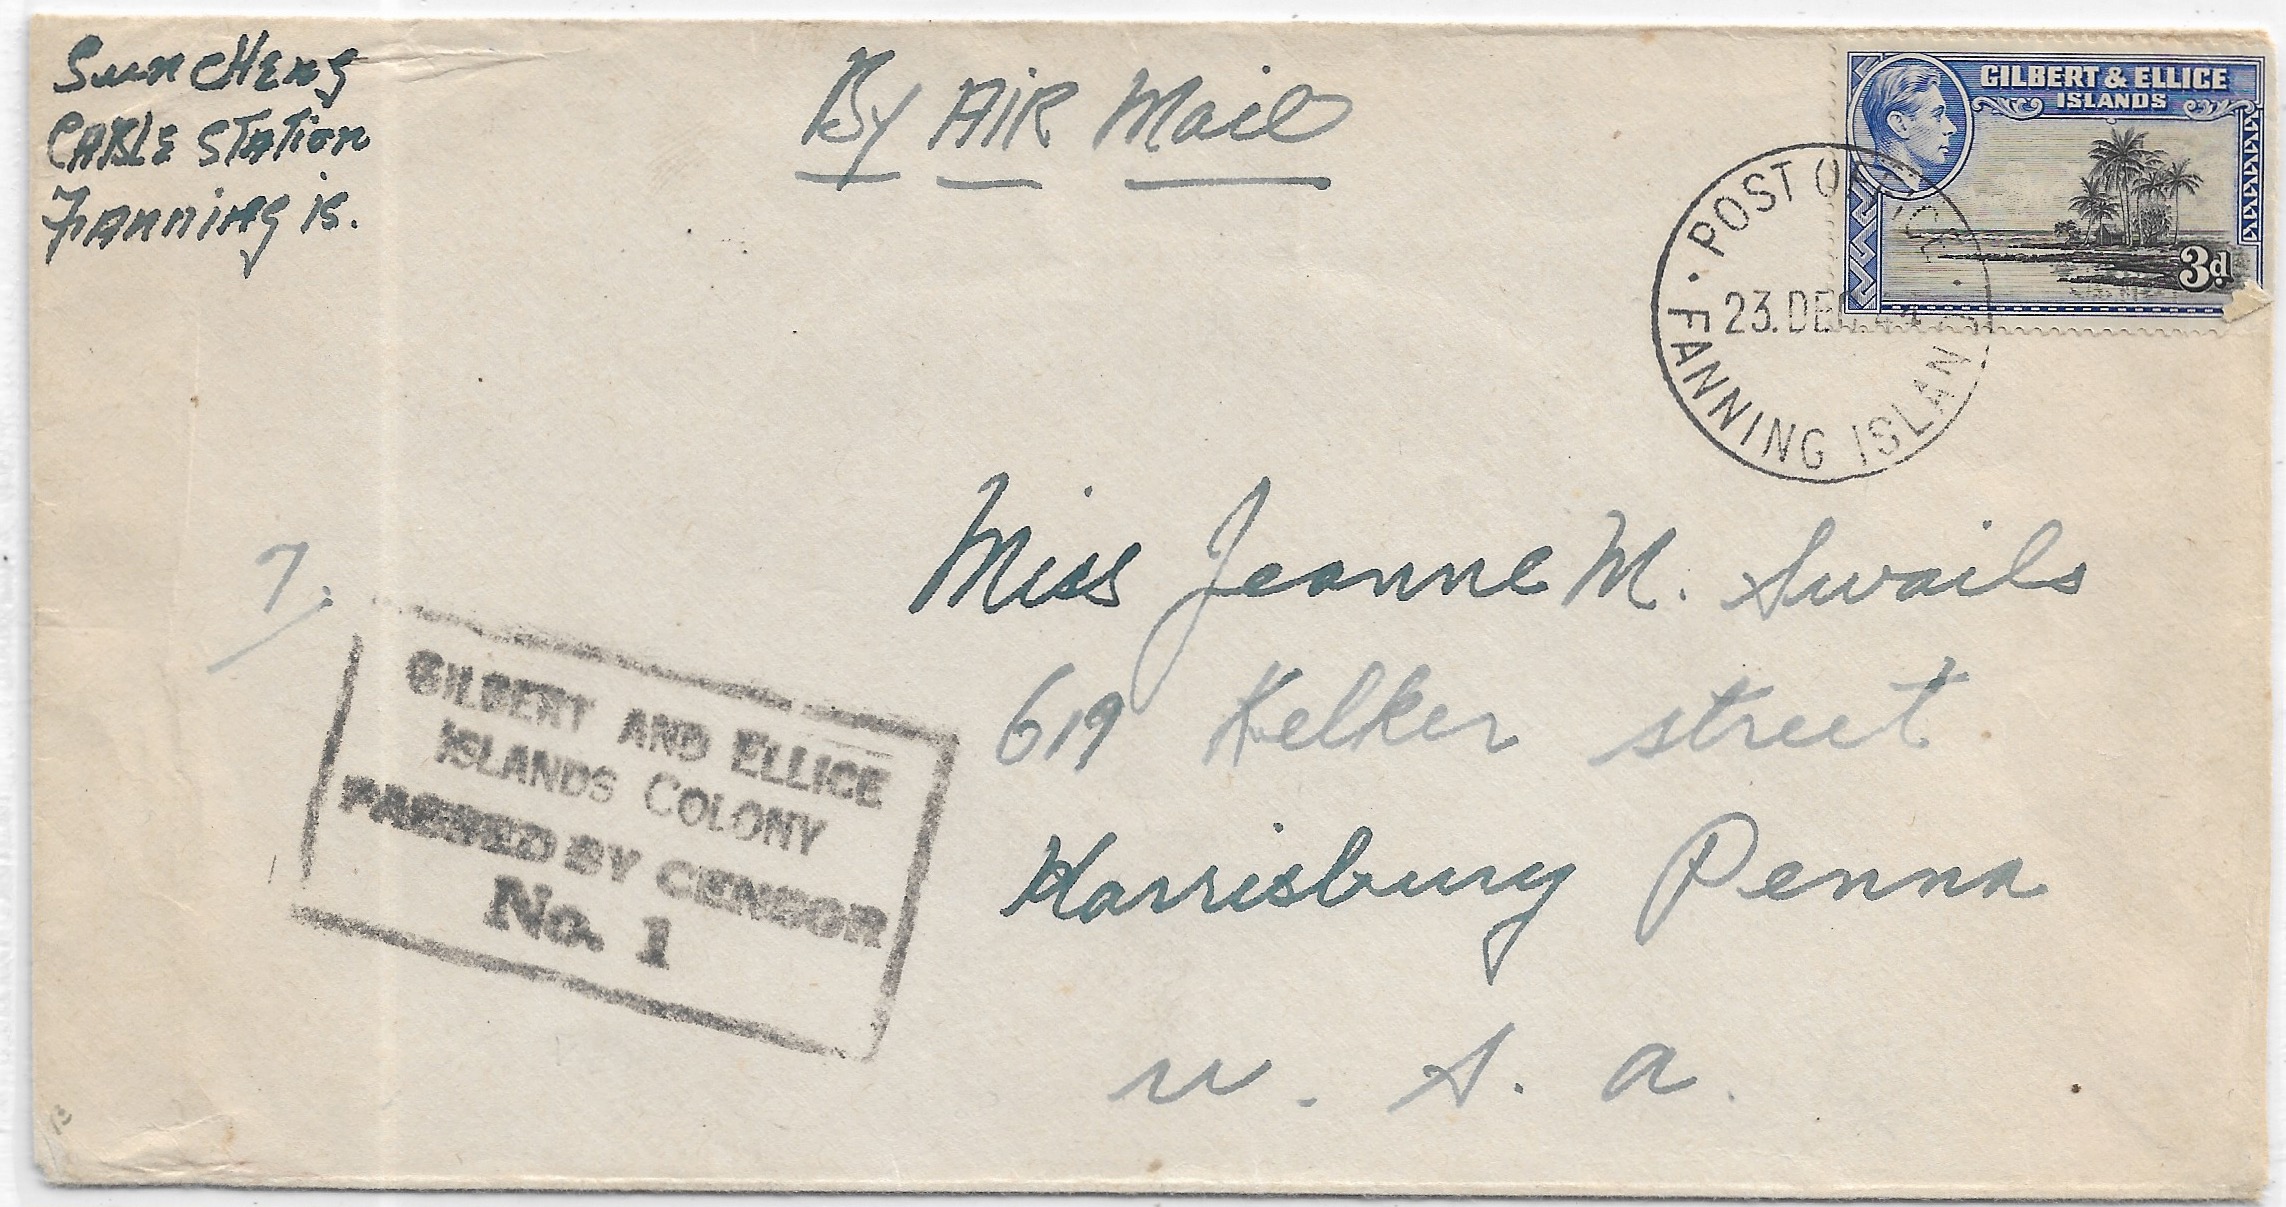 Sun CHEng
CABLE STATion
FAnning is.
By AIR Mail
GILBERT & ELLICE
ISLANDS
3d.
POST OFFICE
23. DEC
FANNING ISLAN
7.
GILBERT AND ELLICE
ISLANDS COLONY
PASSED BY CENSOR
No. 1
Miss Jeanne M. Swails
619 Kelker street
Harrisburg Penna
U. S. A.